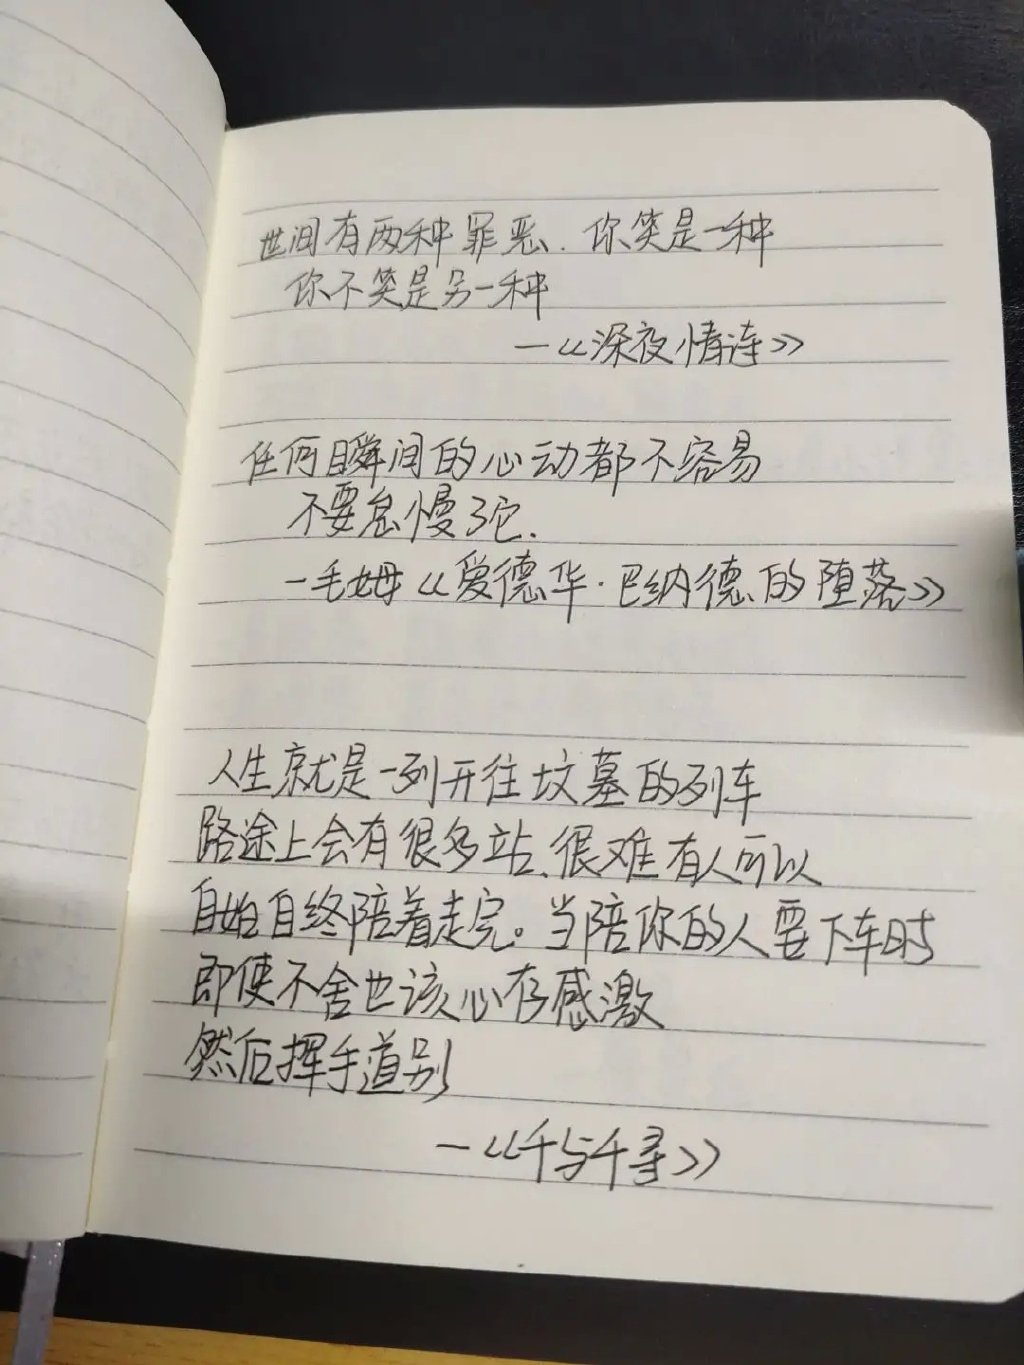 世间有两种罪恶.你笑是一种
你不笑是另一种
—《深夜情连》
任何瞬间的心动都不容易
不要怠慢了它.
—毛姆《爱德华·巴纳德的堕落》
人生就是一列开往坟墓的列车
路途上会有很多站、很难有人可以
自始自终陪着走完。当陪你的人要下车时
即使不舍也该心存感激
然后挥手道别
—《千与千寻》